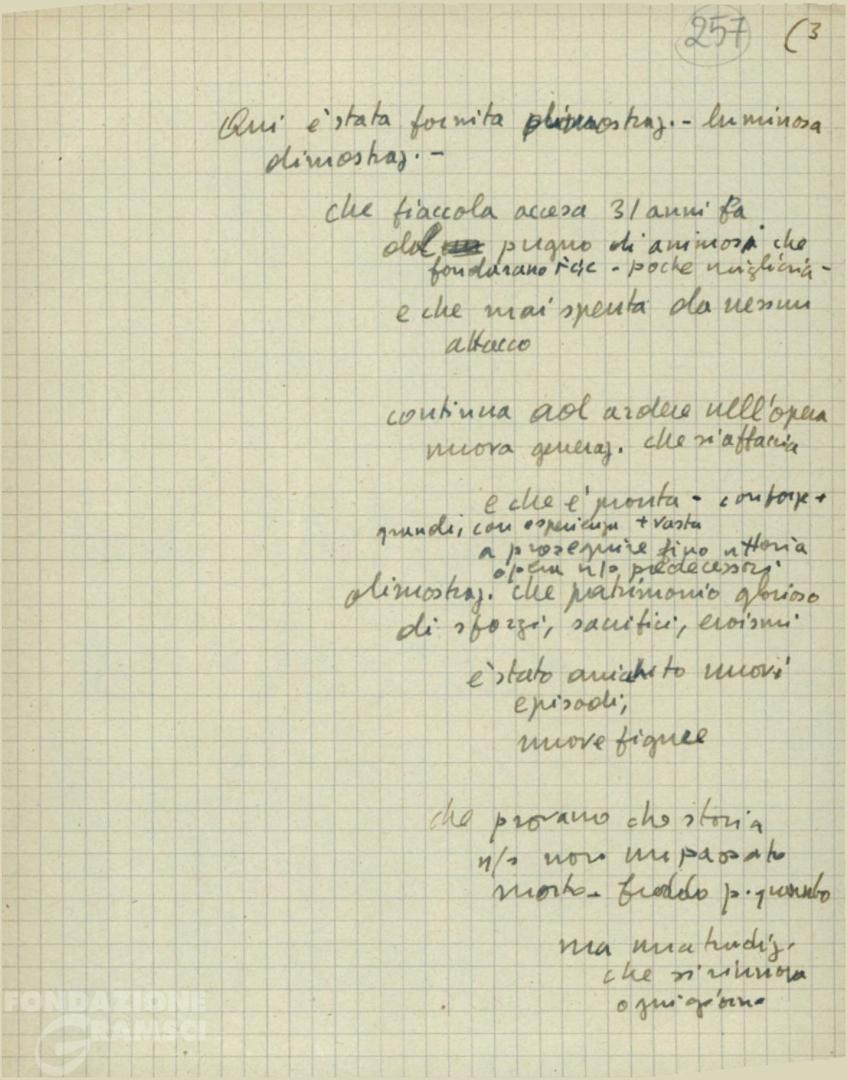 257 (3
Qui è stata fornita dimostraz. - luminosa
dimostraz. -
che fiaccola accesa 31 anni fa
dal pugno di animosi che
fondarono FGC - poche migliaia -
e che mai spenta da nessun
attacco
continua ad ardere nell'opera
nuova generaz. che si affaccia
e che è pronta - con forze +
grandi, con esperienza + vasta
a proseguire fino vittoria
opera n/s predecessori
dimostraz. che patrimonio glorioso
di sforzi, sacrifici, eroismi
è stato arricchito nuovi
episodi,
nuove figure
che provano che storia
n/s non un passato
morto - freddo p. quanto
ma una tradiz.
che si rinnova
ogni giorno
FONDAZIONE
GRAMSCI